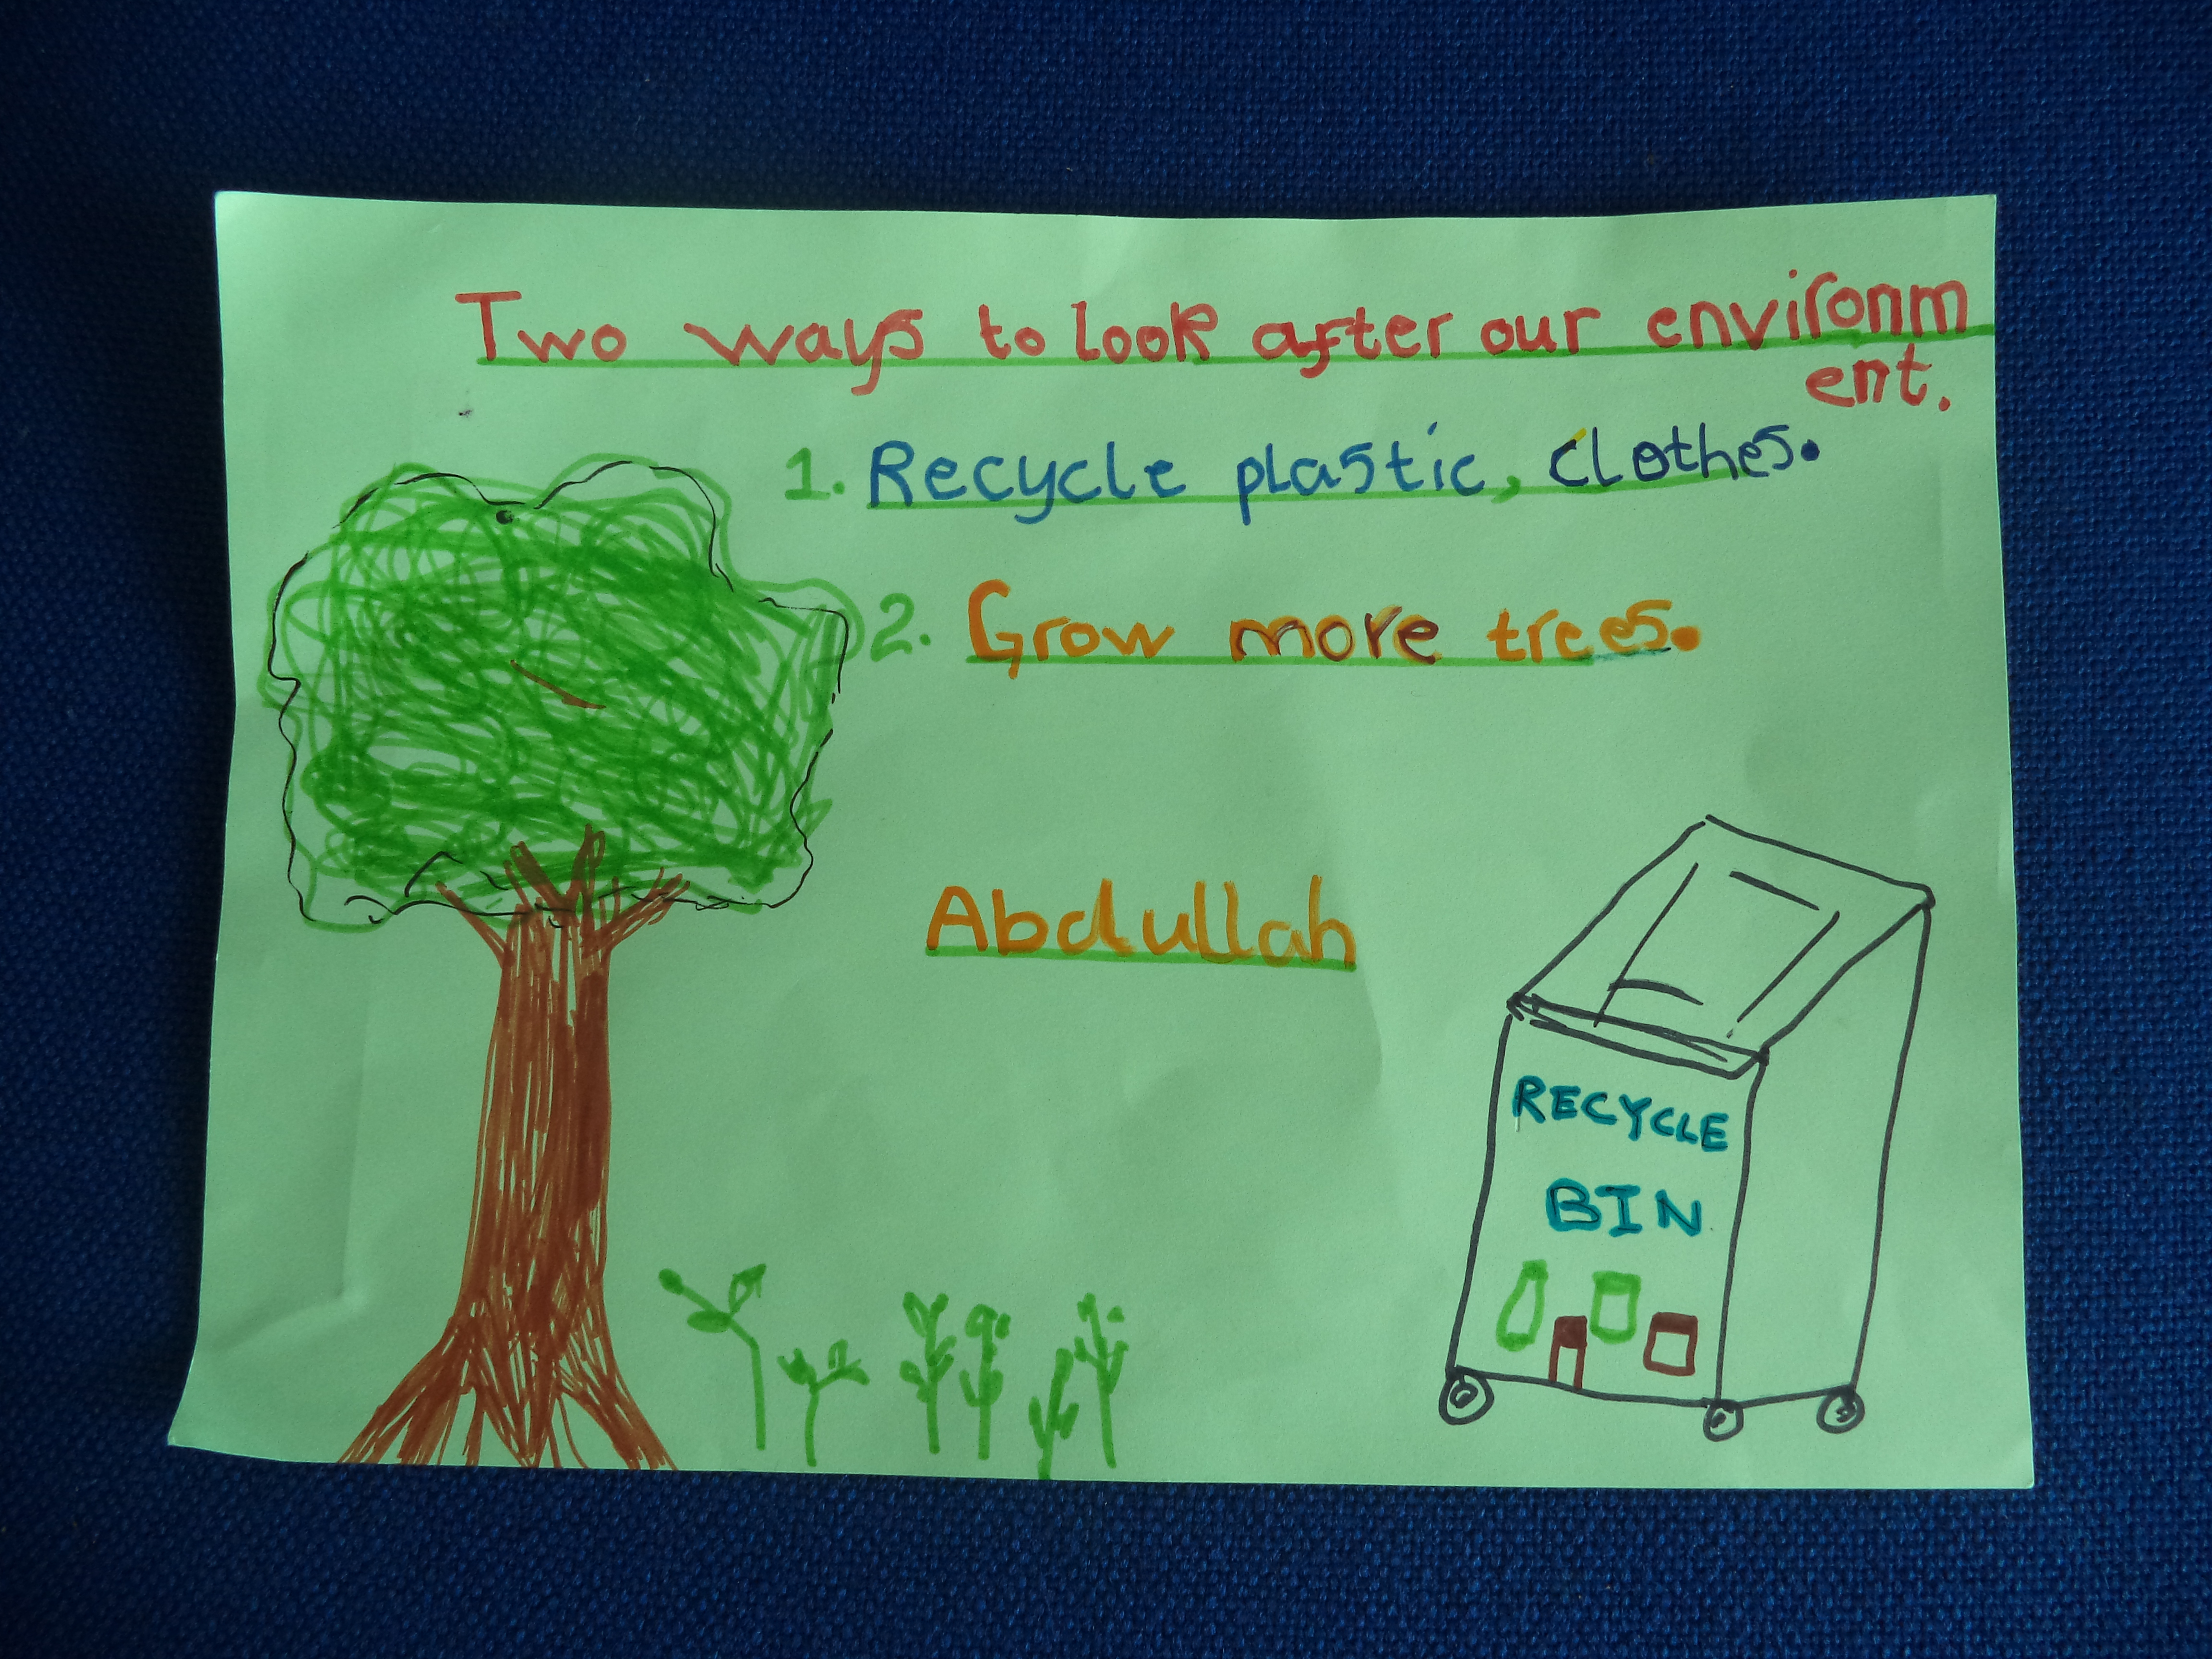 Two ways to look after our environm
ent.
1. Recycle plastic, clothes.
2. Grow more trees.
Abdullah
RECYCLE
BIN